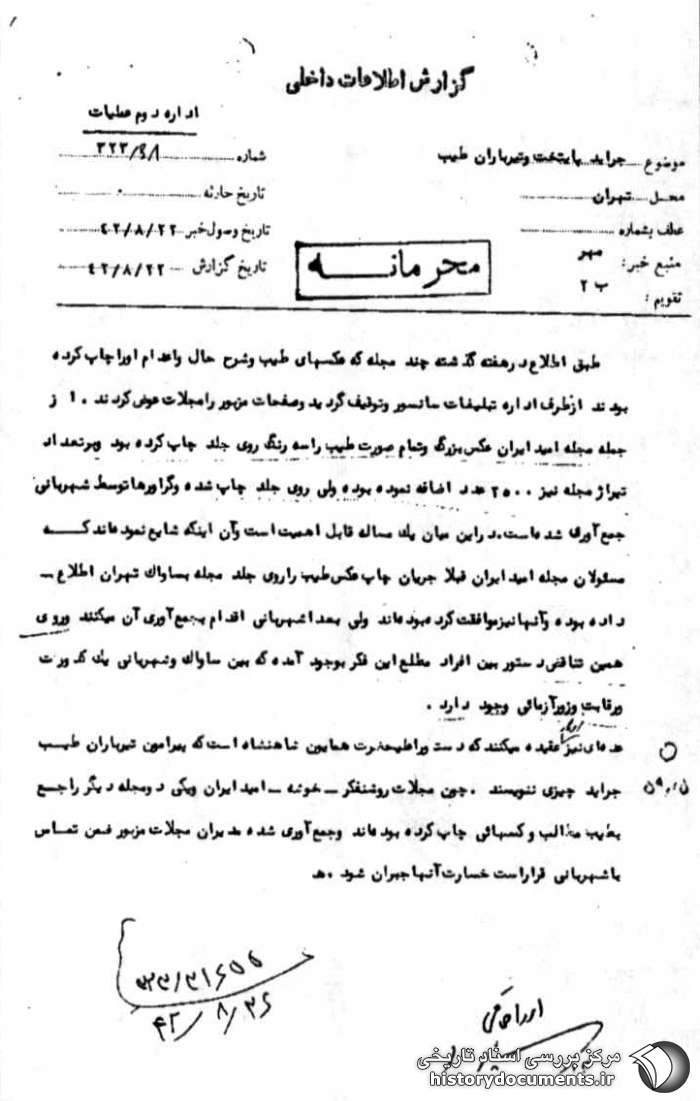 گزارش اطلاعات داخلی
اداره دوم عملیات
موضوع جراید پایتخت وتیرباران طیب
شماره ۳۲۳/۶۸۱
محل تهران
تاریخ حادثه
عطف بشماره
تاریخ وصول خبر ۴۲/۸/۲۲
منبع خبر: مهر
تاریخ گزارش ۴۲/۸/۲۲
تقویم: ب ۲
محرمانه
طبق اطلاع درهفته گذشته چند مجله که عکسهای طیب وشرح حال واعدام اوراچاپ کرده
بودند ازطرف اداره تبلیغات سانسور وتوقیف گردید وصفحات مزبور رامجلات عوض کردند . از
جمله مجله امید ایران عکس بزرگ وتمام صورت طیب راسه رنگ روی جلد چاپ کرده بود وبرتعداد
تیراژ مجله نیز ۲۵۰۰ عدد اضافه نموده بوده ولی روی جلد چاپ شده وگراورهاتوسط شهربانی
جمع آوری شده‌است. دراین میان یک مساله قابل اهمیت است وآن اینکه شایع نموده‌اند کــه
مسئولان مجله امید ایران قبلا جریان چاپ عکس طیب راروی جلد مجله بساواک تهران اطلاع ـ
داده بوده وآنهانیزموافقت کرده‌بوده‌اند ولی بعداشهربانی اقدام بجمع‌آوری آن میکنند وروی
همین تناقض دستور بین افراد مطلع این فکر بوجود آمده که بین ساواک وشهربانی یک کدورت
ورقابت وزورآزمائی وجود دارد .
عده‌ای نیز عقیده میکنند که دستوراعلیحضرت همایون شاهنشاه است که پیرامون تیرباران طیــب
جراید چیزی ننویسند . چون مجلات روشنفکر ـ خوشه ـ امیدایران ویکی دومجله دیگر راجــع
بطیب مطالب وعکسهائی چاپ کرده بوده‌اند وجمع‌آوری شده مدیران مجلات مزبور ضمن تمــاس
باشهربانی قراراست خسارت آنهاجبران شود . هـ
۴۲/۸/۲۶
مرکز بررسی اسناد تاریخی
historydocuments.ir